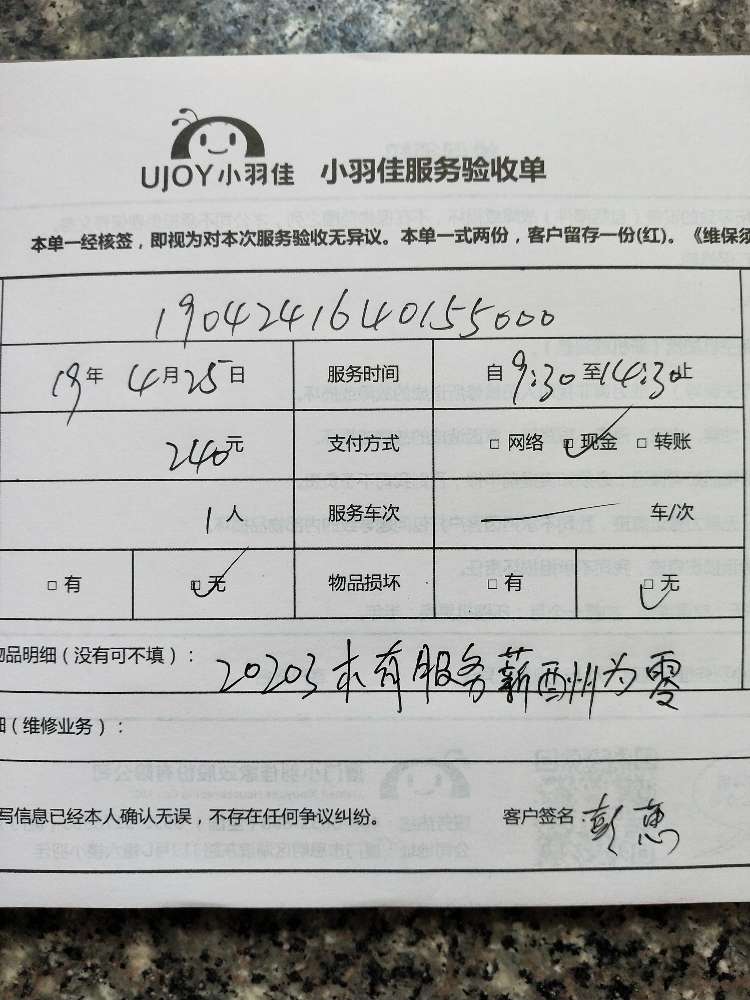 UJOY小羽佳 小羽佳服务验收单
本单一经核签，即视为对本次服务验收无异议。本单一式两份，客户留存一份(红)。《维保须
1904241640155000
19年 4月25日 服务时间 自9:30至14:30止
240元 支付方式 □ 网络 ☑ 现金 □ 转账
1人 服务车次 车/次
□ 有 ☑ 无 物品损坏 □ 有 ☑ 无
物品明细（没有可不填）： 20203未有服务薪酬州为零
细（维修业务）：
写信息已经本人确认无误，不存在任何争议纠纷。 客户签名 彭惠